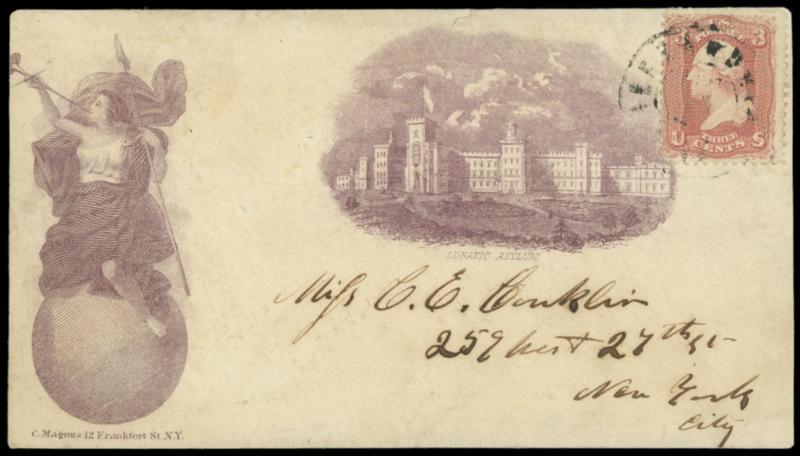 3 3
U S
THREE
CENTS
LUNATIC ASYLUM.
Miss C. E. Conklin
259 West 27th St
New York
City
C. Magnus 12 Frankfort St. N.Y.